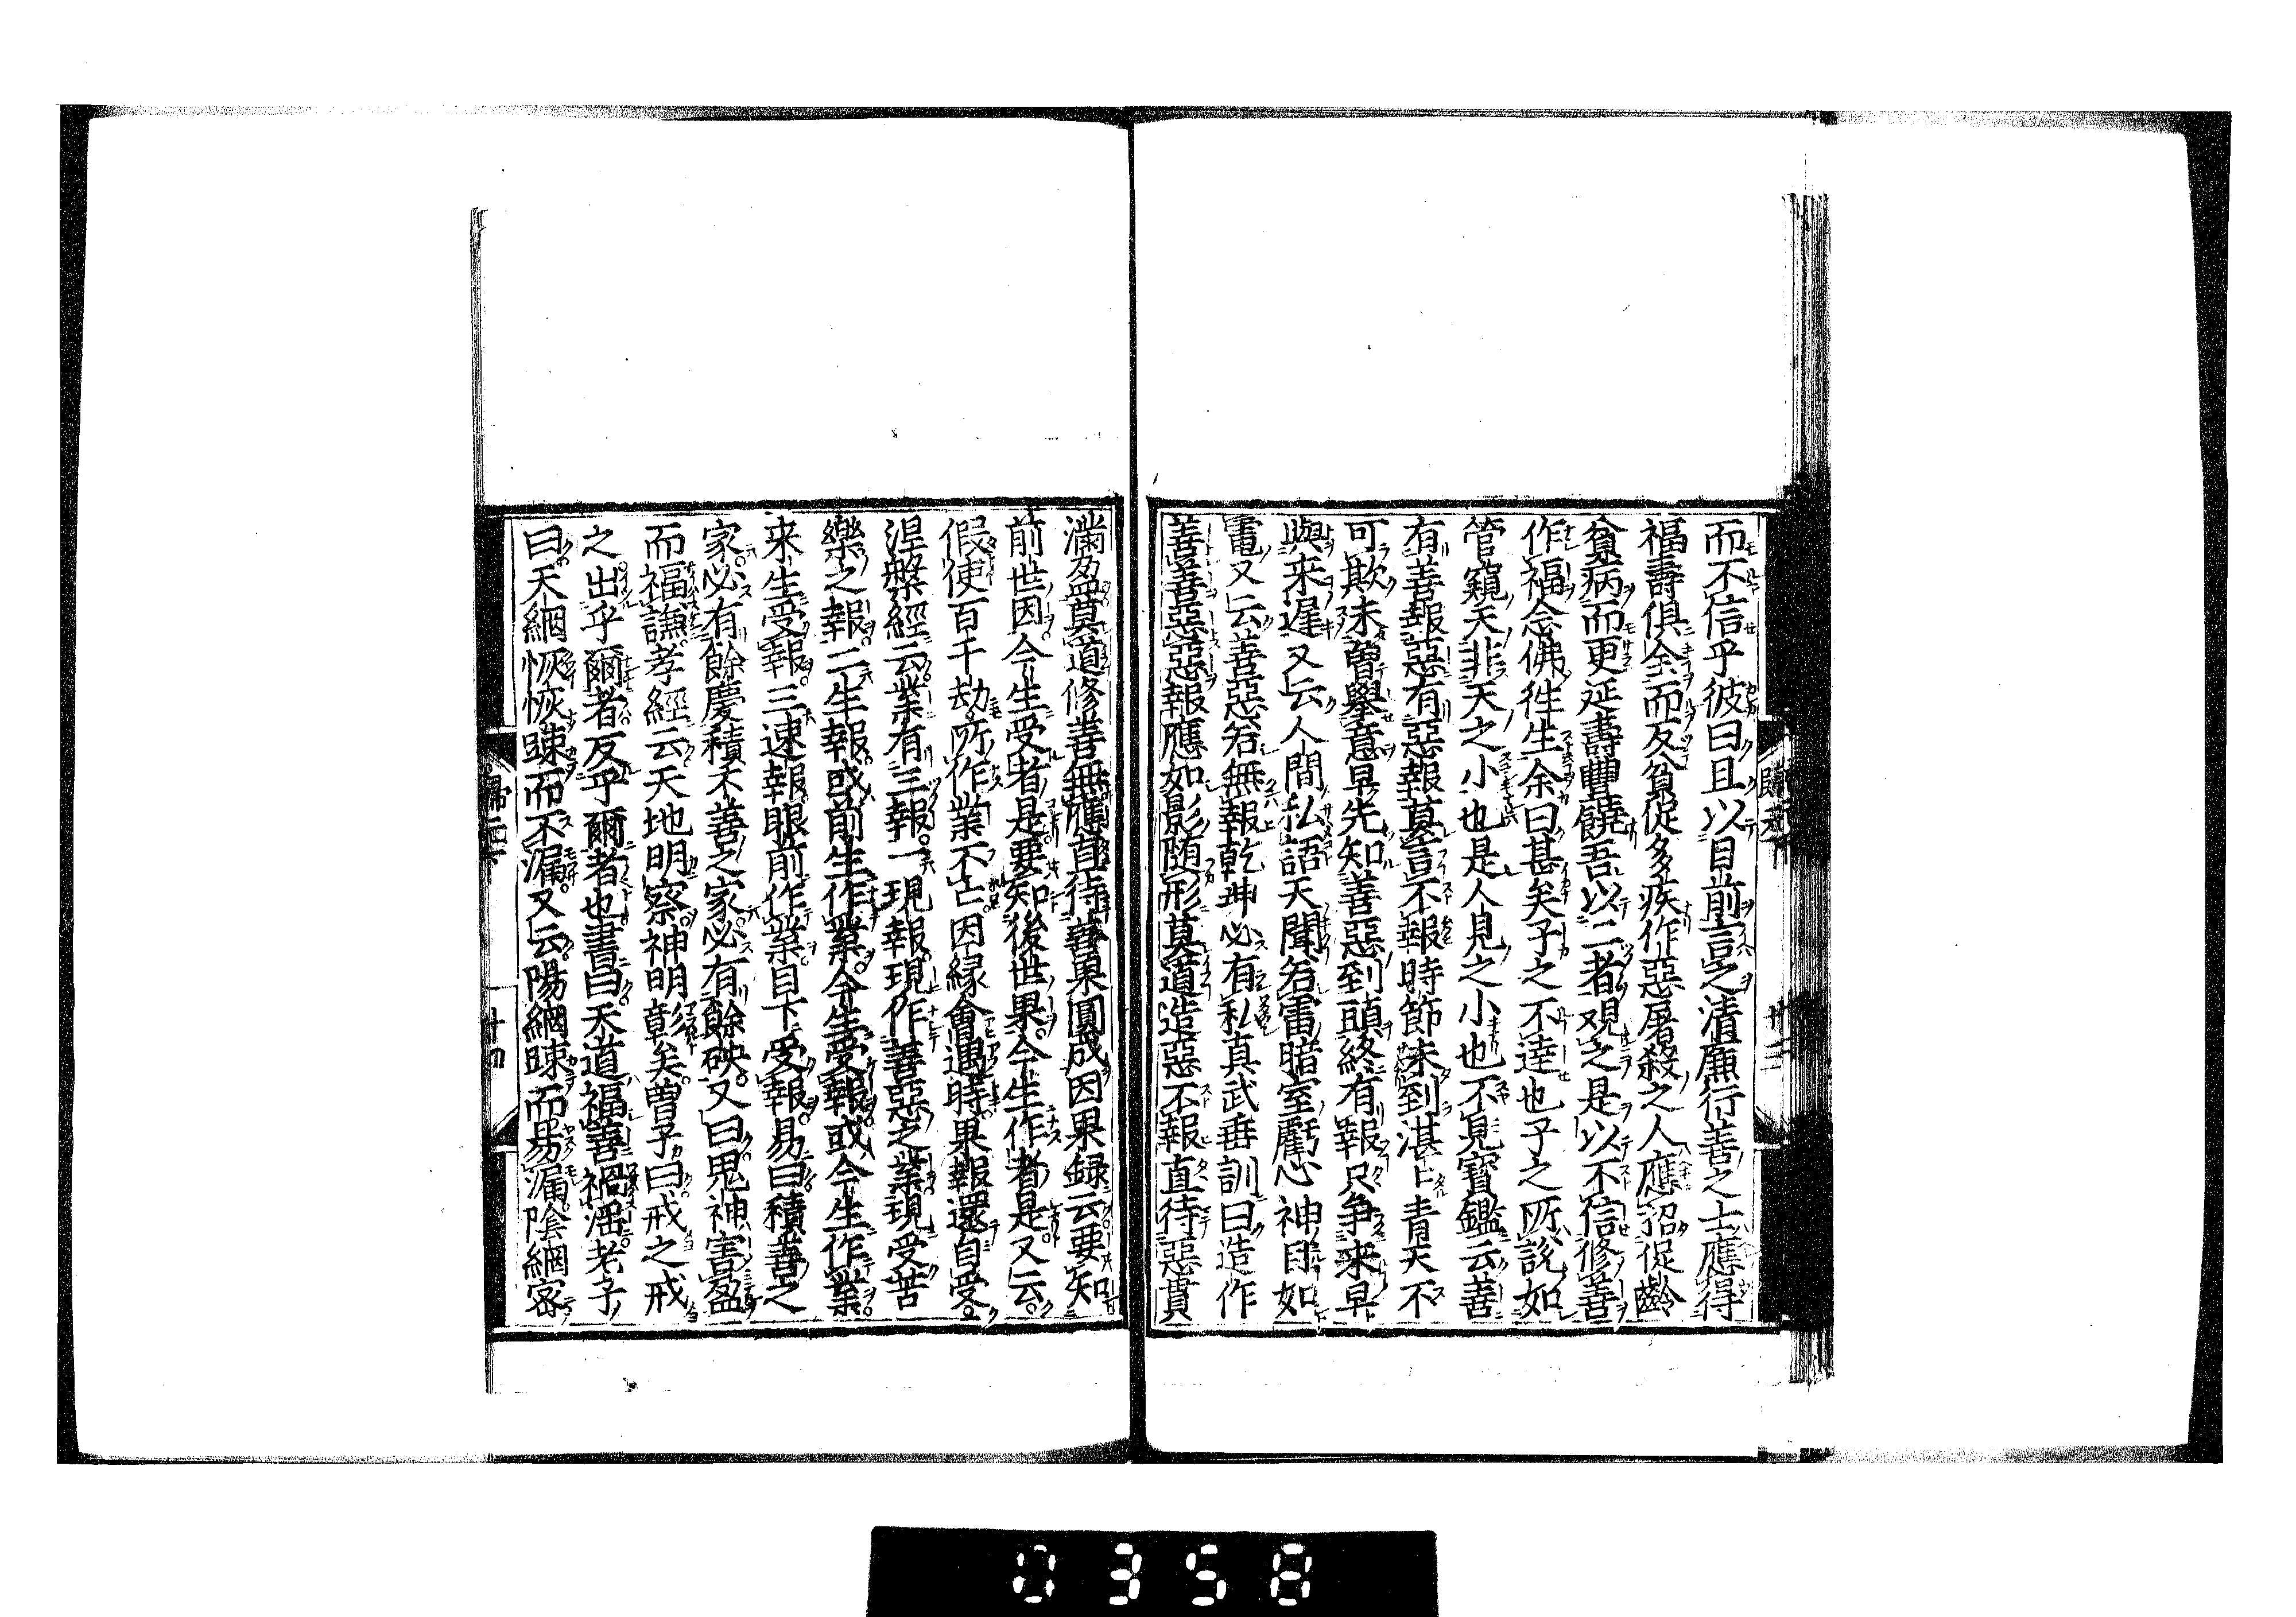 而不信乎彼曰且以目前言之清廉行善之士應得
福壽俱全而反貧促多疾作惡屠殺之人應招促齡
貧病而更延壽豊饒吾以二者观之是以不信修善
作福念佛徃生余曰甚矣子之不達也子之所說如
管窺天非天之小也是人見之小也不見寳鑑云善
有善報惡有惡報莫言不報時節未到湛湛青天不
可欺未曽舉意早先知善惡到頭終有報只争来早
與来遲又云人間私語天聞若雷暗室虧心神目如
電又云善惡若無報乾坤必有私真武垂訓曰造作
善善惡惡報應如影随形莫道造惡不報直待惡貫
滿盈莫道修善無應直待善果圓成因果録云要知
前世因今生受者是要知後世果今生作者是又云
假使百千劫所作業不亡因縁會遇時果報還自受
涅槃經云業有三報一現報現作善惡之業現受苦
樂之報二生報或前生作業今生受報或今生作業
来生受報三速報眼前作業目下受報易曰積善之
家必有餘慶積不善之家必有餘殃又曰鬼神害盈
而福謙孝經云天地明察神明彰矣曽子曰戒之戒
之出乎爾者反乎爾者也書曰天道福善禍滛老子
曰天網恢恢踈而不漏又云陽網踈而易漏陰網宻
歸元
十四